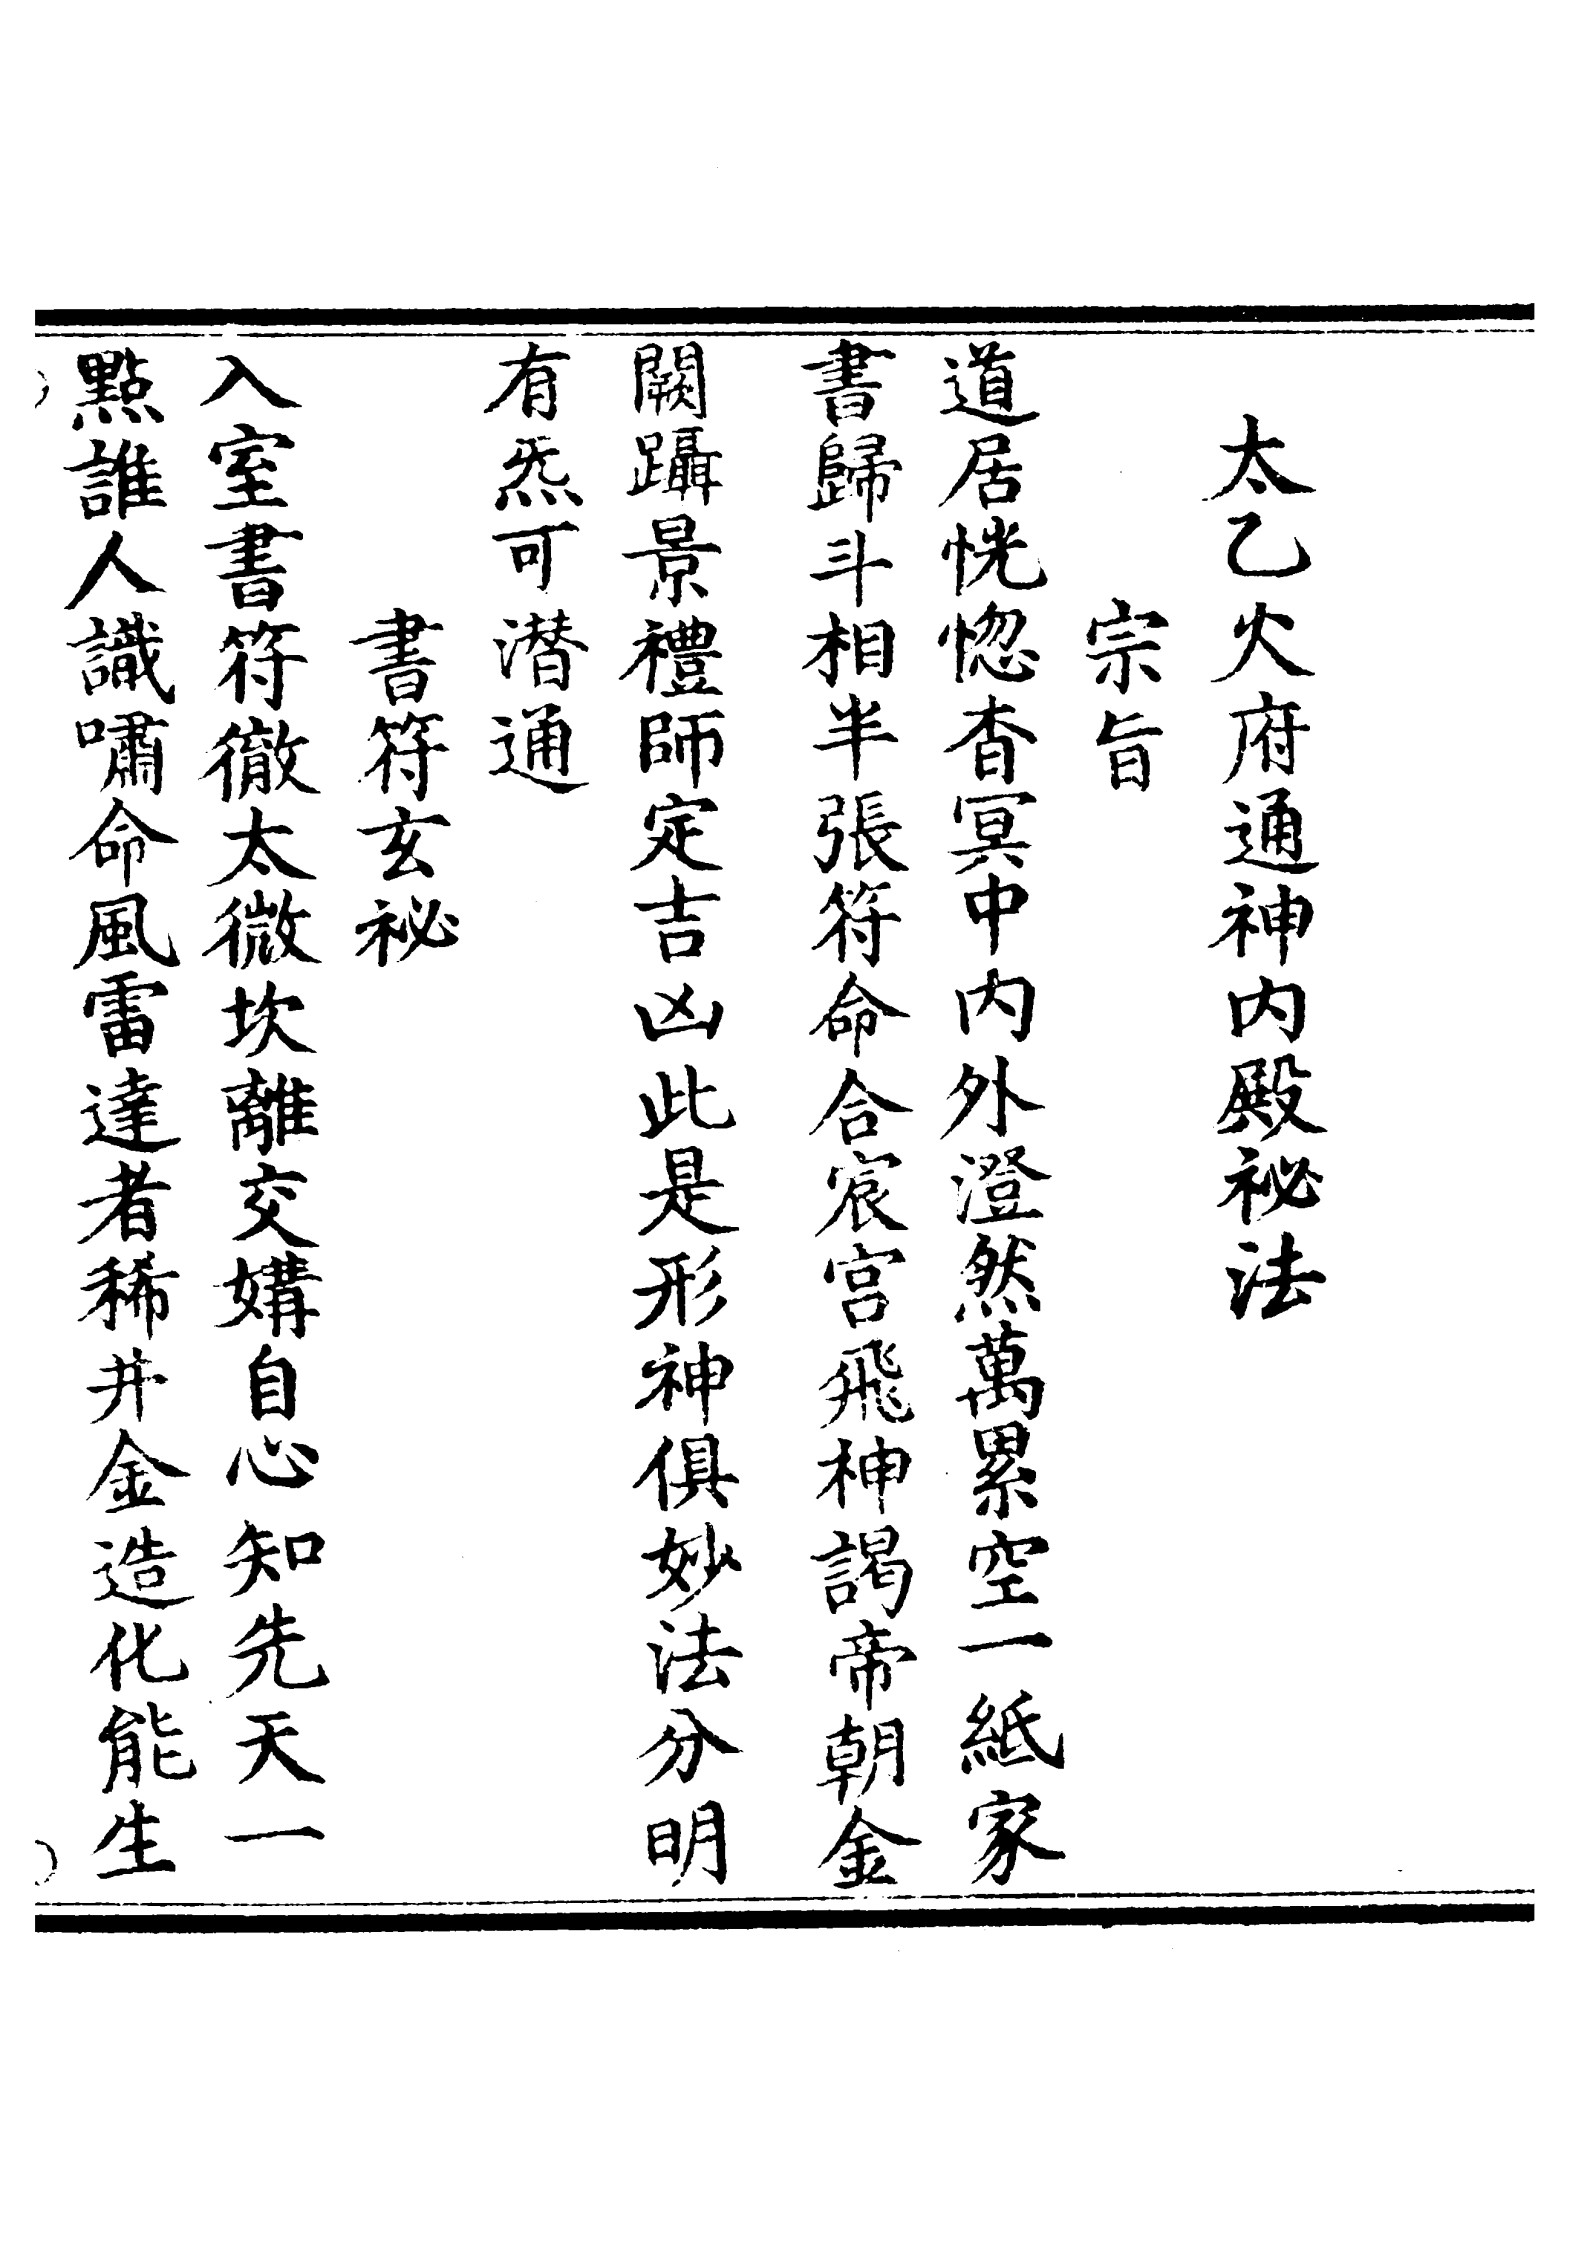 太乙火府通神內殿祕法
宗旨
道居恍惚杳冥中內外澄然萬累空一紙家
書歸斗相半張符命合宸宮飛神謁帝朝金
闕躡景禮師定吉凶此是形神俱妙法分明
有炁可潛通
書符玄祕
入室書符徹太微坎離交媾自心知先天一
點誰人識嘯命風雷達者稀井金造化能生